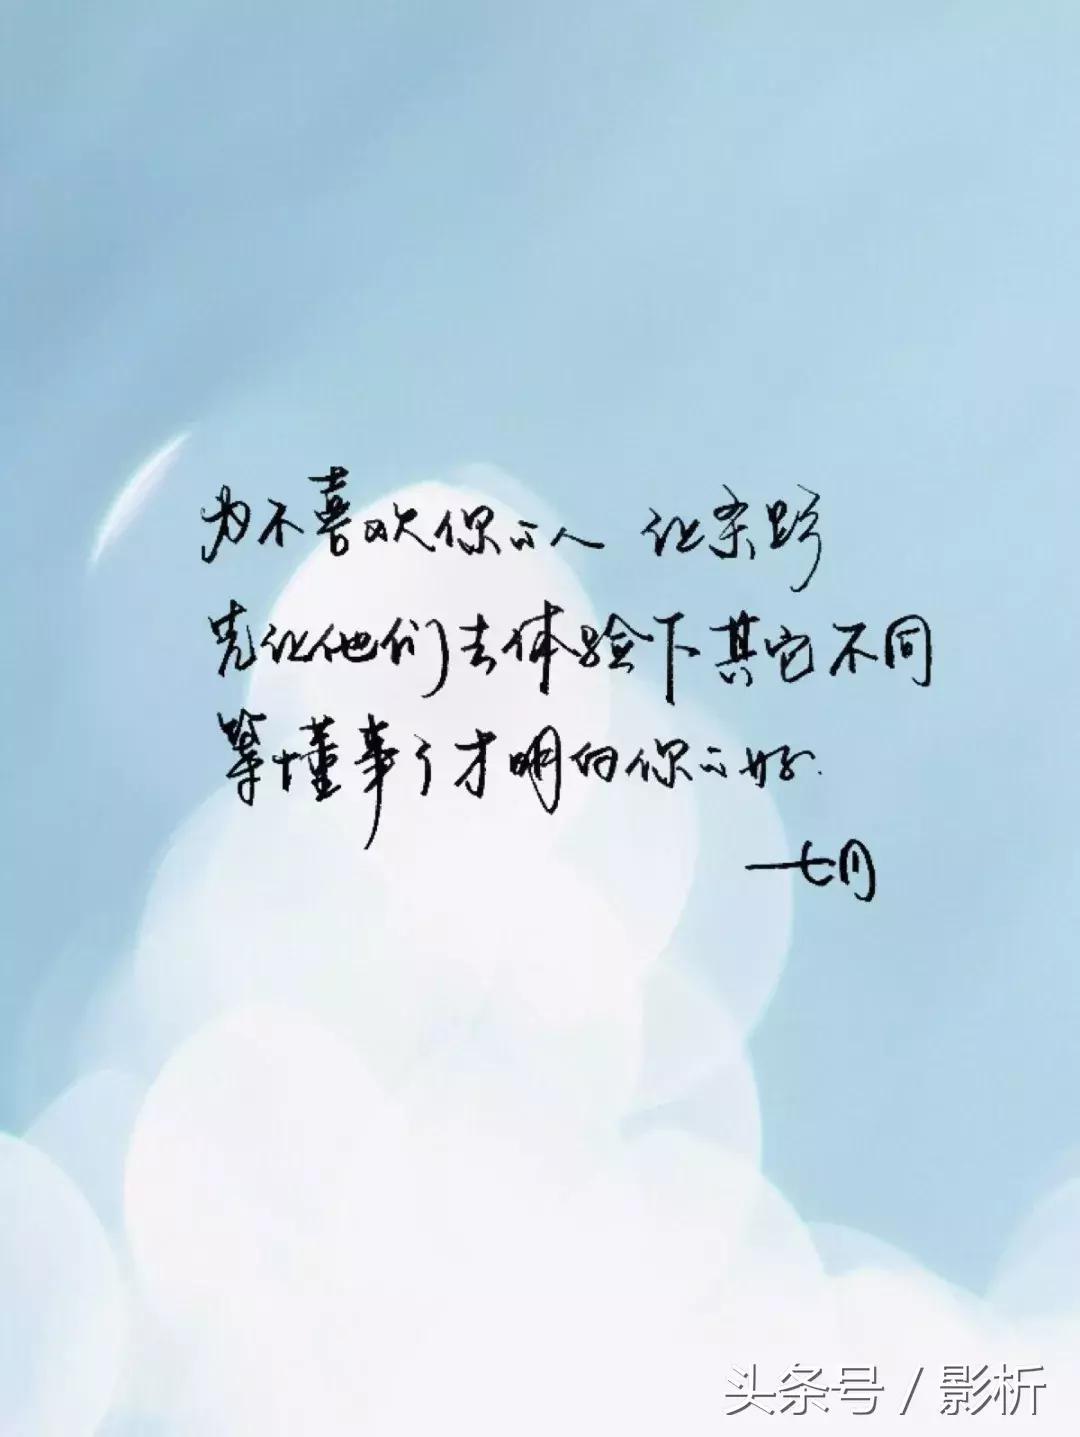 为不喜欢你的人 让条路
先让他们去体验下其它不同
等懂事了才明白你的好.
一七月
头条号 / 影析